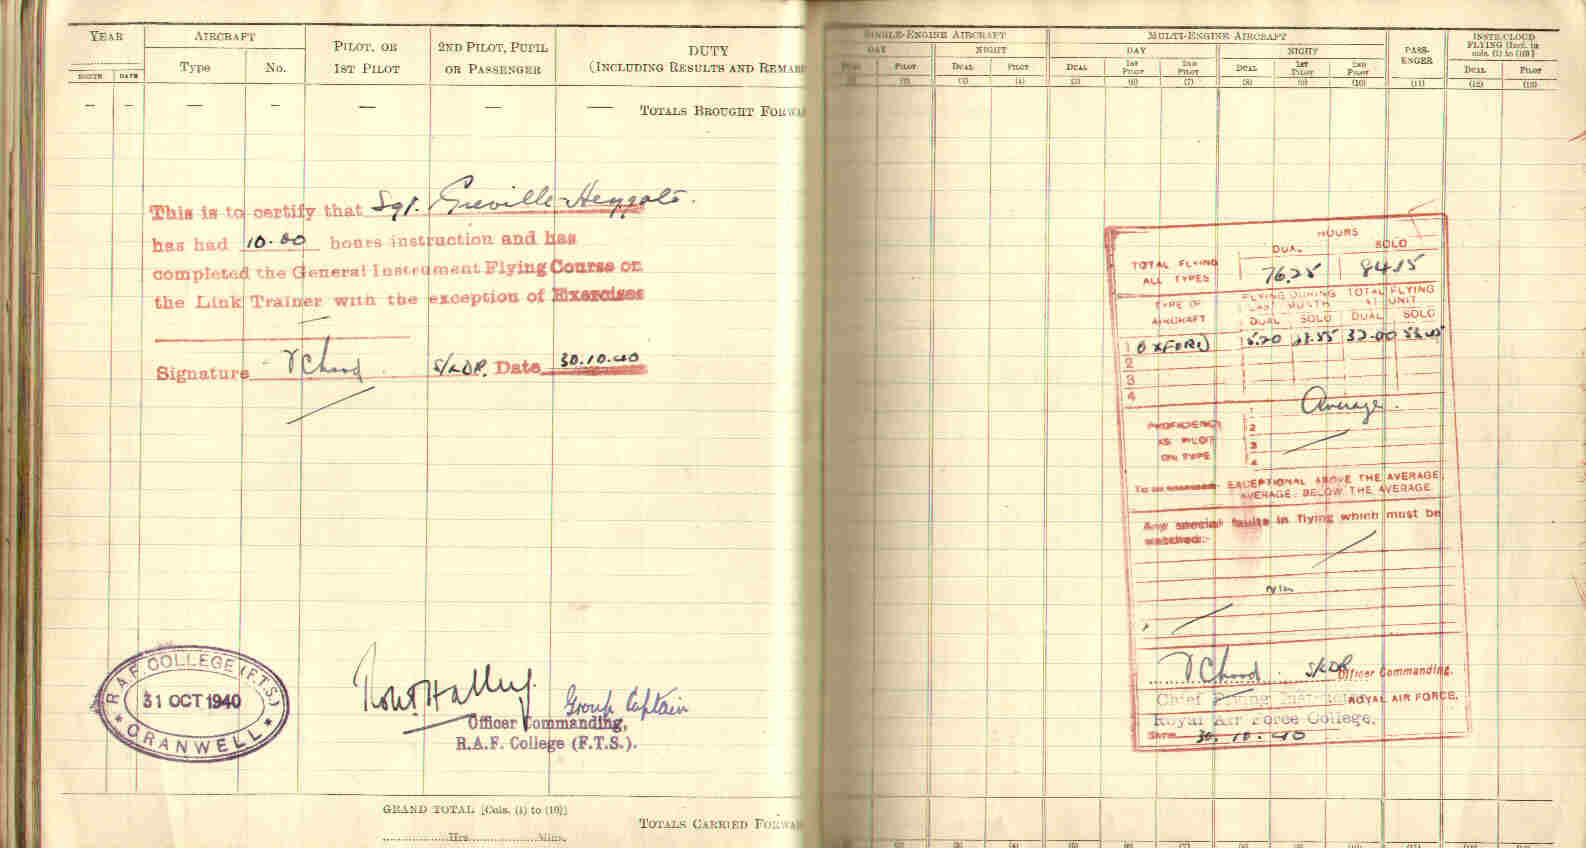 YEAR
AIRCRAFT
PILOT, OR
1ST PILOT
2ND PILOT, PUPIL
OR PASSENGER
DUTY
(INCLUDING RESULTS AND REMAR
MONTH
DATE
Type
No.
— — — — — — —
TOTALS BROUGHT FORWA
This is to certify that Sgt. Greville-Heygate.
has had 10.00 hours instruction and has
completed the General Instrument Flying Course on
the Link Trainer with the exception of Exercises
Signature S/LDR. Date 30.10.40
R.A.F. COLLEGE (F.T.S.)
31 OCT 1940
* CRANWELL *
Group Captain
Officer Commanding,
R.A.F. College (F.T.S.).
GRAND TOTAL [Cols. (1) to (10)]
Hrs. Mins.
TOTALS CARRIED FORWA
SINGLE-ENGINE AIRCRAFT
MULTI-ENGINE AIRCRAFT
PASS-
ENGER
INSTR/CLOUD
FLYING [Incl. in
cols. (1) to (10)]
DAY
NIGHT
DAY
NIGHT
PILOT
DUAL
PILOT
DUAL
1ST
PILOT
2ND
PILOT
DUAL
1ST
PILOT
2ND
PILOT
DUAL
PILOT
(2) (3) (4) (5) (6) (7) (8) (9) (10) (11) (12) (13)
HOURS
DUAL SOLO
TOTAL FLYING
ALL TYPES
76.25 84.15
TYPE OF
AIRCRAFT
FLYING DURING
LAST MONTH
TOTAL FLYING
AT UNIT
DUAL SOLO DUAL SOLO
1 OXFORD 32.00
2
3
4
Average.
PROFICIENCY
AS PILOT
ON TYPE
1
2
3
4
EXCEPTIONAL ABOVE THE AVERAGE,
AVERAGE, BELOW THE AVERAGE
Any special faults in flying which must be
watched:-
S/LDR Officer Commanding.
Chief Flying Instructor ROYAL AIR FORCE.
Royal Air Force College.
30.10.40